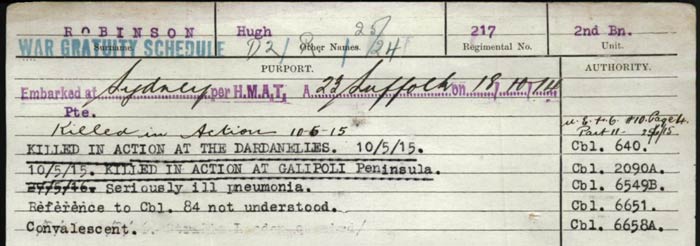 ROBINSON Hugh 25 217 2nd Bn.
WAR GRATUITY SCHEDULE D2/ 24
Surname. Other Names. Regimental No. Unit.
PURPORT. AUTHORITY.
Embarked at Sydney per H.M.A.T. A 23 Suffolk on 18/10/14
Pte.
Killed in Action 10-5-15
Part II
KILLED IN ACTION AT THE DARDANELLES. 10/5/15. Cbl. 640.
10/5/15. KILLED IN ACTION AT GALIPOLI Peninsula. Cbl. 2090A.
Seriously ill pneumonia. Cbl. 6549B.
Reference to Cbl. 84 not understood. Cbl. 6651.
Convalescent. Cbl. 6658A.